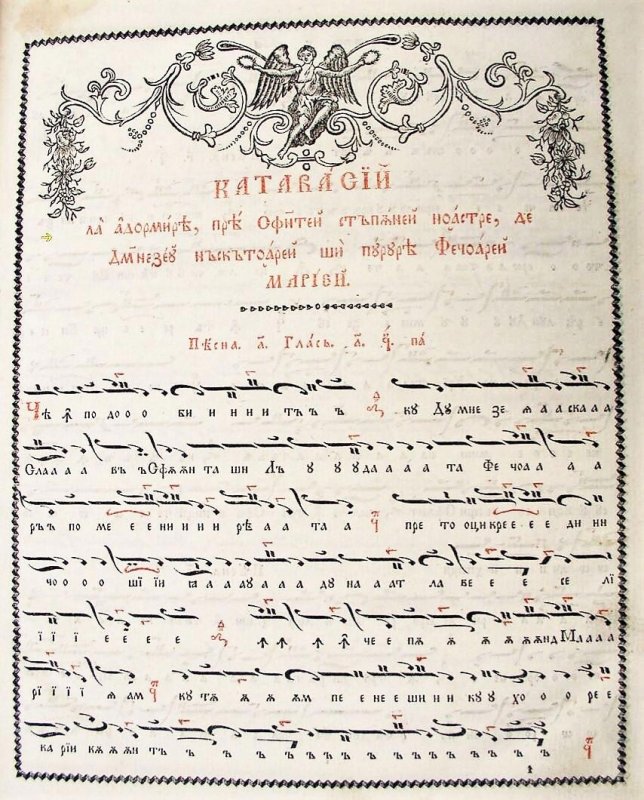 КАТАВАСІЙ
ла̀ а҆дормирѣ, прѣ Сфи́нтей стъпѫ́ней ноа́стре, де
Дꙋмнезеꙋ нъскътоа́рей шѝ пꙋрꙋрѣ Фечоа́рей
МАРІЕЙ.
Пѣсна. а҃. Гла́съ. а҃. па́
Чѣ ꙟ подо о о би и н и и тъ ъ кꙋ Дꙋ мне зе ѧ а а ска а а
Сла а а а въ ъ Сфѫ ѫн та ши Лъ ꙋ ꙋ ꙋ да а а а а та Фе чоа а а а
ръ ъ по ме е е ни и и и рѣ а а та а пре то оци кре е е е ди ни
чо о о о шїи ꙗ а а а ꙋ а а а дꙋ на а ат ла ве е е се лї
ї ї ї е е е е ꙟ че е пѫ ѫ ѫ ѫ ѫ ѫнд Ма а а а
рї ї ї ї ѧ ам кꙋ тѫ ѫ ѫ ѫм пе е не е ши и и кꙋ ꙋ хо о о о ре е
ка рїи кѫ ѫ ѫн тъ ъ ъ ъ ъ ъ ъ ъ ъ ъ ъ ъ ъ ъ